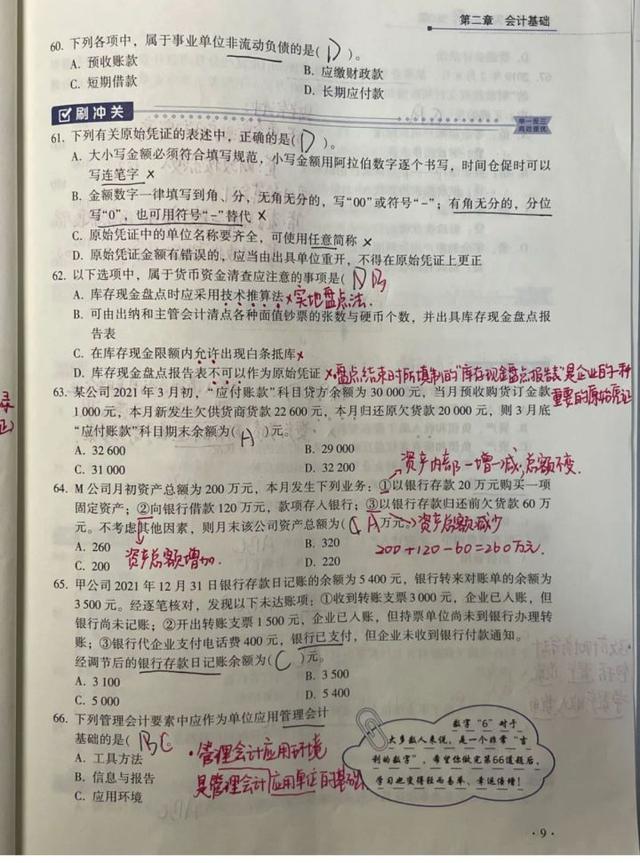 第二章 会计基础
60. 下列各项中，属于事业单位非流动负债的是( D )。
A. 预收账款 B. 应缴财政款
C. 短期借款 D. 长期应付款
刷冲关
61. 下列有关原始凭证的表述中，正确的是( D )。
A. 大小写金额必须符合填写规范，小写金额用阿拉伯数字逐个书写，时间仓促时可以
写连笔字 ×
B. 金额数字一律填写到角、分，无角无分的，写“00”或符号“-”；有角无分的，分位
写“0”，也可用符号“-”替代 ×
C. 原始凭证中的单位名称要齐全，可使用任意简称 ×
D. 原始凭证金额有错误的，应当由出具单位重开，不得在原始凭证上更正
62. 以下选项中，属于货币资金清查应注意的事项是( D B
A. 库存现金盘点时应采用技术推算法 × 实地盘点法.
B. 可由出纳和主管会计清点各种面值钞票的张数与硬币个数，并出具库存现金盘点报
告表
C. 在库存现金限额内允许出现白条抵库 ×
D. 库存现金盘点报告表不可以作为原始凭证 × 盘点结束时所填制的“库存现金盘点报告表”是企业的一种
重要的原始凭证
63. 某公司 2021 年 3 月初，“应付账款”科目贷方余额为 30 000 元，当月预收购货订金款
1 000 元，本月新发生欠供货商货款 22 600 元，本月归还原欠货款 20 000 元，则 3 月底
“应付账款”科目期末余额为( A )元。
A. 32 600 B. 29 000
C. 31 000 D. 32 200
资产内部一增一减，总额不变.
64. M 公司月初资产总额为 200 万元，本月发生下列业务：①以银行存款 20 万元购买一项
固定资产；②向银行借款 120 万元，款项存入银行；③以银行存款归还前欠货款 60 万
元。不考虑其他因素，则月末该公司资产总额为( A 万元。 资产总额减少
A. 260 B. 320
资产总额增加. 200+120-60=260万元.
C. 200 D. 220
65. 甲公司 2021 年 12 月 31 日银行存款日记账的余额为 5 400 元，银行转来对账单的余额为
3 500 元。经逐笔核对，发现以下未达账项：①收到转账支票 3 000 元，企业已入账，但
银行尚未记账；②开出转账支票 1 500 元，企业已入账，但持票单位尚未到银行办理转
账；③银行代企业支付电话费 400 元，银行已支付，但企业未收到银行付款通知。
经调节后的银行存款日记账余额为( C )元。
A. 3 100 B. 3 500
C. 5 000 D. 5 400
66. 下列管理会计要素中应作为单位应用管理会计
基础的是( B C
A. 工具方法
B. 信息与报告
C. 应用环境
管理会计应用环境
是管理会计应用单证的基础
数字“6”对于
大多数人来说，是一个非常“吉
利的数字”，希望你做完第66道题后，
学习也变得轻而易举、幸运倍增！
· 9 ·